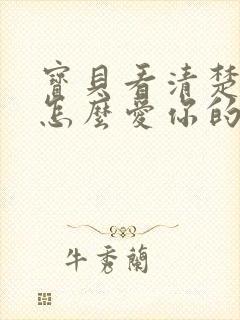 寶貝看清楚
怎麼愛你的
牛秀蘭